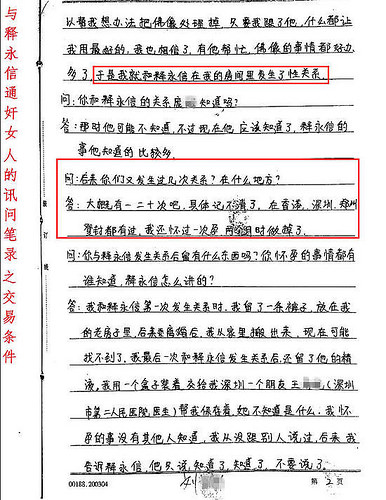 与释永信通奸女人的讯问笔录之交易条件
以帮我想办法把佛像处理掉,只要我跟了他,什么都让
我用最好的,我也相信了,有他帮忙,佛像的事情都好办
多了,于是我就和释永信在我的房间里发生了性关系。
问:你和释永信的关系庞 知道吗?
答:那时他可能不知道,不过现在他应该知道了,释永信的
事他知道的比较多。
问:后来你们又发生过几次关系?在什么地方?
答:大概有一二十次吧,具体记不清了,在香港、深圳、郑州
登封都有过,我还怀过一次孕,两个月时做掉了。
问:你与释永信发生关系后留有什么东西吗?你怀孕的事情都有
谁知道,释永信怎么讲的?
答:我和释永信第一次发生关系时,我留了一条裤子,放在我
的老房子里,后来要离婚后,我从家里搬出来,现在可能
找不到了,我最后一次和释永信发生关系后,还留了他的精
液,我用一个盒子装着交给我深圳一个朋友王 (深圳
市第二人民医院医生)帮我保存着,她不知道是什么。我怀
孕的事没有其他人知道,我从没跟别人说过,后来我
告诉释永信,他只说,知道了,知道了,不要说了。
00188.200304
第2页
装订线